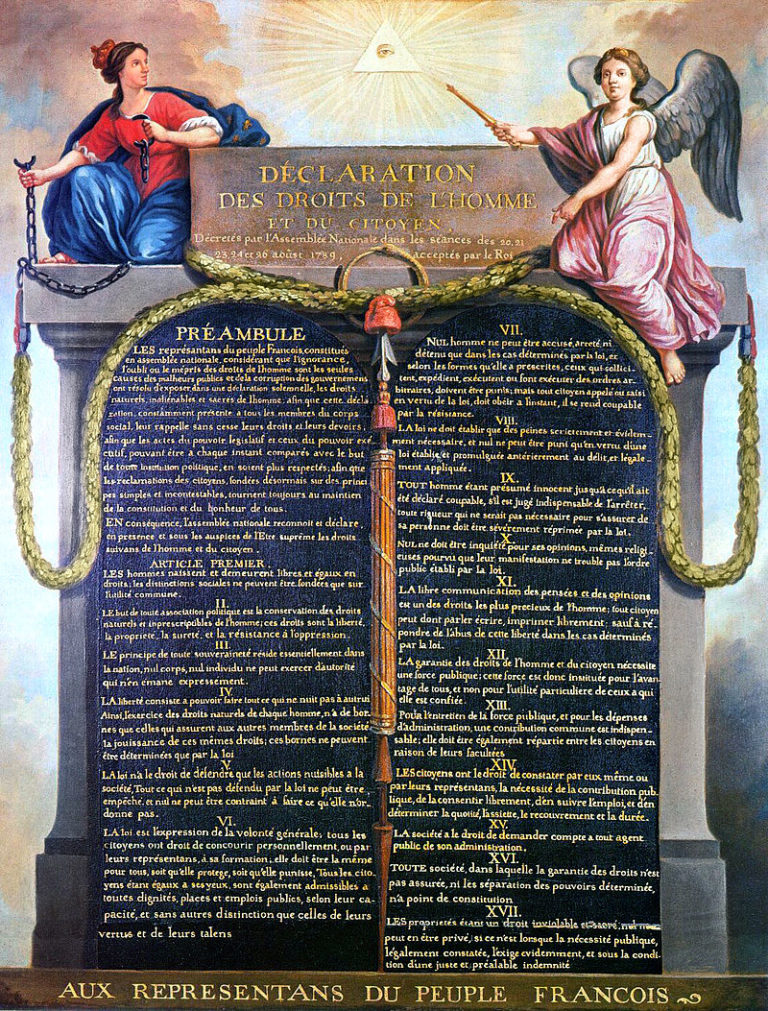 DÉCLARATION
DES DROITS DE L'HOMME
ET DU CITOYEN,
Décretés par l'Assemblée Nationale dans les séances des 20, 21
23, 24 et 26 aoûst 1789, acceptés par le Roi
PRÉAMBULE
LES représantans du peuple François, constitués
en assemblée nationale, considérant que l'ignorance,
l'oubli ou le mépris des droits de l'homme sont les seules
causes des malheurs publics et de la corruption des gouvernemens
ont résolu d'exposer, dans une déclaration solemnelle, les droits
naturels, inaliénables et sacrés de l'homme; afin que cette décla
ration, constamment présente a tous les membres du corps
social, leur rappelle sans cesse leurs droits et leurs devoirs;
afin que les actes du pouvoir législatif et ceux du pouvoir exé
cutif, pouvant être a chaque instant comparés avec le but
de toute institution politique, en soient plus respectés; afin que
les reclamations des citoyens, fondées désormais sur des princi
pes simples et incontestables, tournent toujours au maintien
de la constitution et du bonheur de tous.
EN conséquence, l'assemblée nationale reconnoit et déclare,
en presence et sous les auspices de l'Etre suprême les droits
suivans de l'homme et du citoyen.
ARTICLE PREMIER.
LES hommes naissent et demeurent libres et égaux en
droits; les distinctions sociales ne peuvent être fondées que sur
l'utilité commune.
II.
LE but de toute association politique est la conservation des droits
naturels et inprescripibles de l'homme; ces droits sont la liberté,
la propriété, la sureté, et la résistance à l'oppression.
III.
LE principe de toute souveraineté réside essentiellement dans
la nation, nul corps, nul individu ne peut exercer d'autorité
qui n'en émane expressement.
IV.
LA liberté consiste a pouvoir faire tout ce qui ne nuit pas à autrui
Ainsi, l'exercice des droits naturels de chaque homme, n'a de bor-
nes que celles qui assurent aux autres membres de la société
la jouissance de ces mêmes droits; ces bornes ne peuvent
être déterminées que par la loi
V.
LA loi n'a le droit de défendre que les actions nuisibles a la
société, Tout ce qui n'est pas défendu par la loi ne peut être
empêché, et nul ne peut être contraint à faire ce qu'elle n'or-
donne pas.
VI.
LA loi est l'expression de la volonté générale; tous les
citoyens ont droit de concourir personnellement, ou par
leurs représentans, à sa formation; elle doit être la même
pour tous, soit qu'elle protege, soit qu'elle punisse, Tous les cito
yens étant égaux à ses yeux, sont également admissibles a
toutes dignités, places et emplois publics, selon leur ca-
pacité, et sans autres distinction que celles de leurs
vertus et de leurs talens
VII.
NUL homme ne peut être accusé, arreté, ni
détenu que dans les cas déterminés par la loi, et
selon les formes qu'elle a prescrites, ceux qui sollici-
tent, expédient, exécutent ou font exécuter des ordres ar-
bitraires, doivent être punis; mais tout citoyen appelé ou saisi
en vertu de la loi, doit obéir a l'instant, il se rend coupable
par la résistance.
VIII.
LA loi ne doit établir que des peines strictement et évidem-
ment nécessaire, et nul ne peut être puni qu'en vertu d'une
loi établie et promulguée antérierement au délit, et légale-
ment appliquée.
IX.
TOUT homme étant présumé innocent jusqu'à ce qu'il ait
été déclaré coupable, s'il est jugé indispensable de l'arrêter,
toute rigueur qui ne serait pas nécessaire pour s'assurer de
sa personne doit être sévèrement réprimée par la loi.
X.
NUL ne doit être inquiété pour ses opinions, mêmes religi-
euses pourvu que leur manifestation ne trouble pas l'ordre
public établi par la loi.
XI.
LA libre communication des pensées et des opinions
est un des droits les plus precieux de l'homme; tout citoyen
peut dont parler écrire, imprimer librement; sauf à ré-
pondre de l'abus de cette liberté dans les cas déterminés
par la loi.
XII.
LA garantie des droits de l'homme et du citoyen nécessite
une force publique; cette force est donc instituée pour l'avan
tage de tous, et non pour l'utilité particuliere de ceux a qui
elle est confiée.
XIII.
Pour l'entretien de la force publique, et pour les dépenses
d'administration, une contribution commune est indispen-
sable; elle doit être également répartie entre les citoyens en
raison de leurs facultées
XIV.
LES citoyens ont le droit de constater par eux même ou
par leurs représentans, la nécessité de la contribution pub-
lique, de la consentir librement, d'en suivre l'emploi, et d'en
déterminer la quotité, l'assiette, le recouvrement et la durée.
XV.
LA société a le droit de demander compte a tout agent
public de son administration.
XVI.
TOUTE société, dans laquelle la garantie des droits n'est
pas assurée, ni les séparation des pouvoirs déterminée,
n'a point de constitution
XVII.
LES proprietés étant un droit inviolable et sacré, nul ne
peut en être privé, si ce n'est lorsque la nécessité publique,
légalement constatée, l'exige evidemment, et sous la condi-
tion d'une juste et préalable indemnité
AUX REPRESENTANS DU PEUPLE FRANCOIS